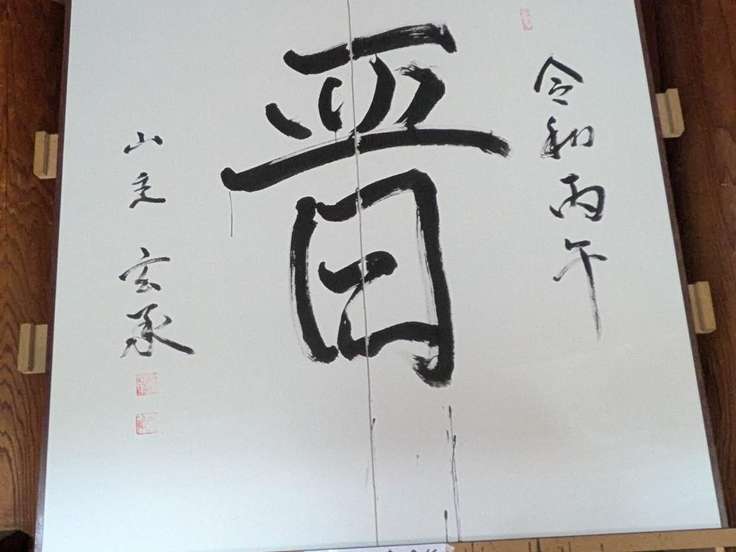 令和丙午
晋
山 玄承